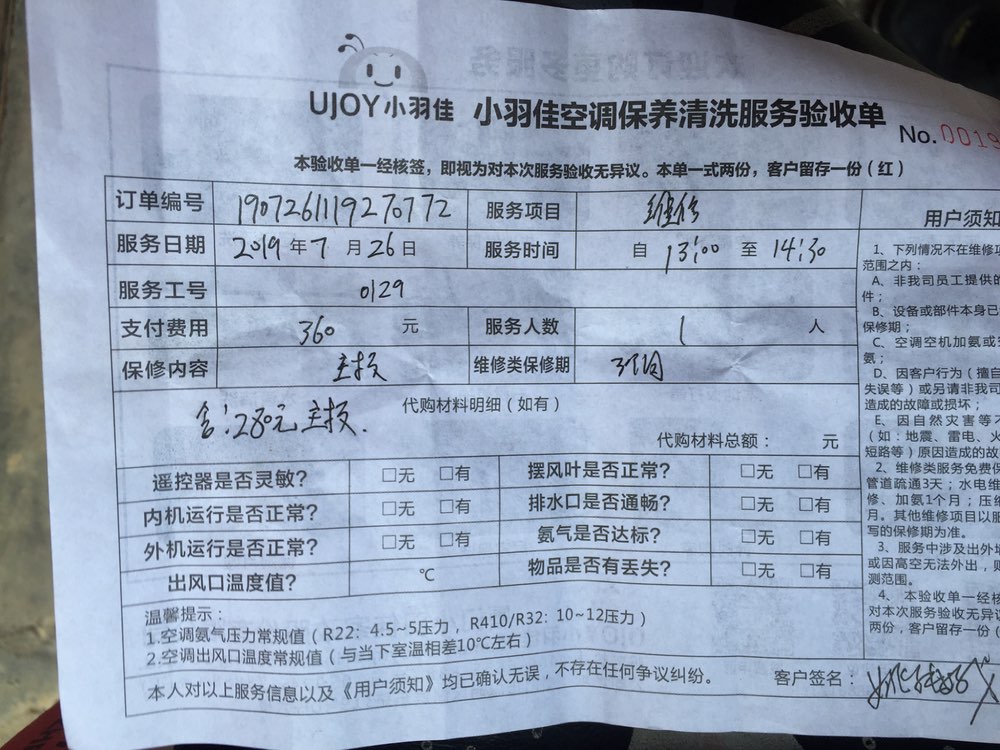 UJOY小羽佳 小羽佳空调保养清洗服务验收单
No.0019
本验收单一经核签，即视为对本次服务验收无异议。本单一式两份，客户留存一份（红）
订单编号 1907261119270772 服务项目 维修
服务日期 2019年7月26日 服务时间 自 13:00 至 14:30
服务工号 0129
支付费用 360 元 服务人数 1 人
保修内容 主板 维修类保修期
代购材料明细（如有）
含:280元主板.
代购材料总额： 元
遥控器是否灵敏? □无 □有 摆风叶是否正常? □无 □有
内机运行是否正常? □无 □有 排水口是否通畅? □无 □有
外机运行是否正常? □无 □有 氨气是否达标? □无 □有
出风口温度值? ℃ 物品是否有丢失? □无 □有
温馨提示：
1.空调氨气压力常规值（R22：4.5~5压力，R410/R32：10~12压力）
2.空调出风口温度常规值（与当下室温相差10℃左右）
本人对以上服务信息以及《用户须知》均已确认无误，不存在任何争议纠纷。 客户签名：
用户须知
1、下列情况不在维修
范围之内：
A、非我司员工提供的
件；
B、设备或部件本身已
保修期；
C、空调空机加氨或
氨；
D、因客户行为（擅自
失误等）或另请非我司
造成的故障或损坏；
E、因自然灾害等不
（如：地震、雷电、火
短路等）原因造成的故
2、维修类服务免费保
管道疏通3天；水电维
修、加氨1个月；压缩
月。其他维修项目以服
写的保修期为准。
3、服务中涉及出外墙
或因高空无法外出，则
测范围。
4、本验收单一经核
对本次服务验收无异议
两份，客户留存一份（